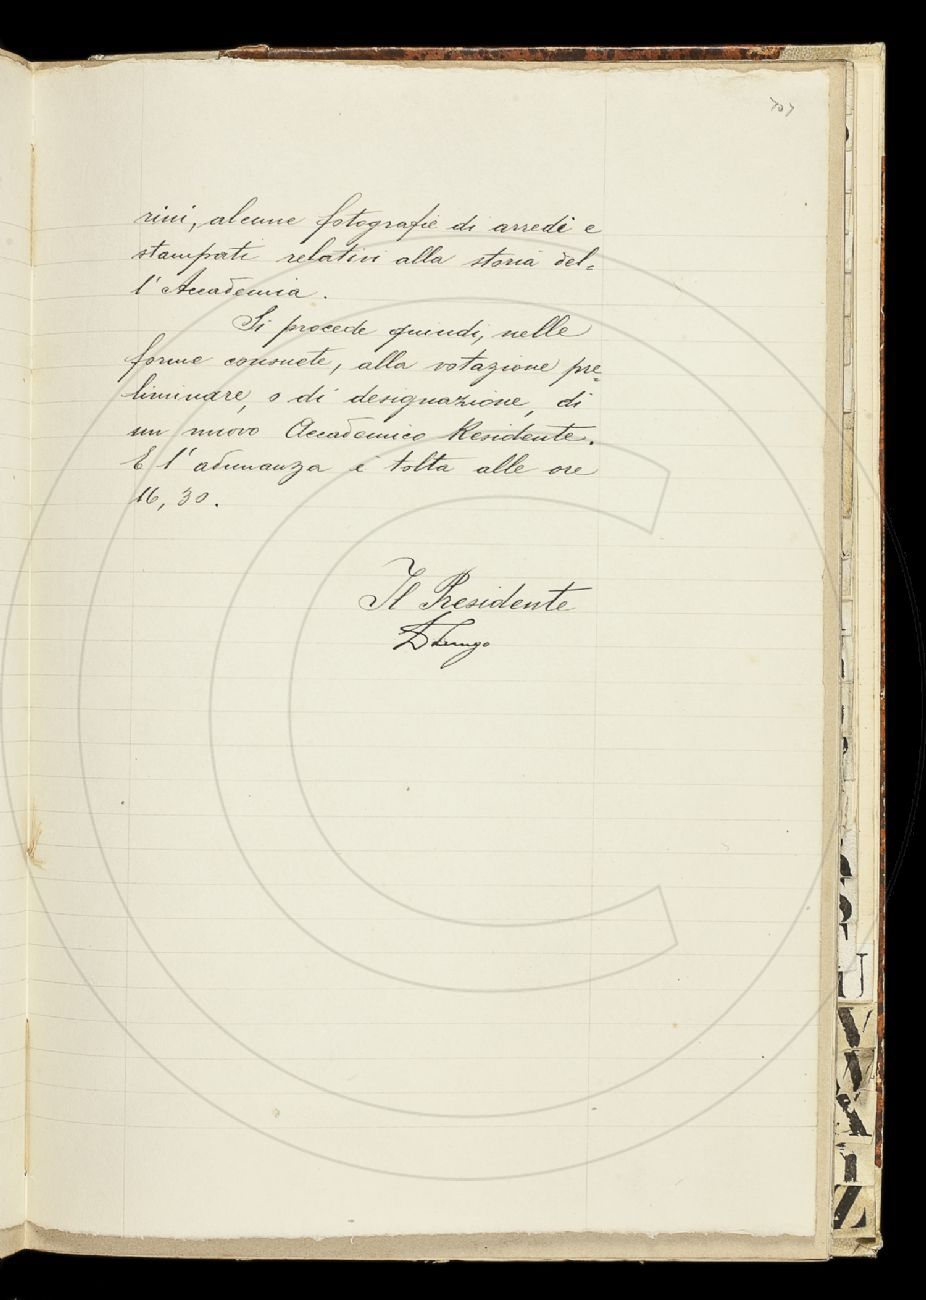 707
rini, alcune fotografie di arredi e
stampati relativi alla storia del=
l'Accademia.
Si procede quindi, nelle
forme consuete, alla votazione pre=
liminare, o di designazione, di
un nuovo Accademico Residente.
E l'adunanza è tolta alle ore
16,30.
Il Presidente
S
U
V
W
X
Z